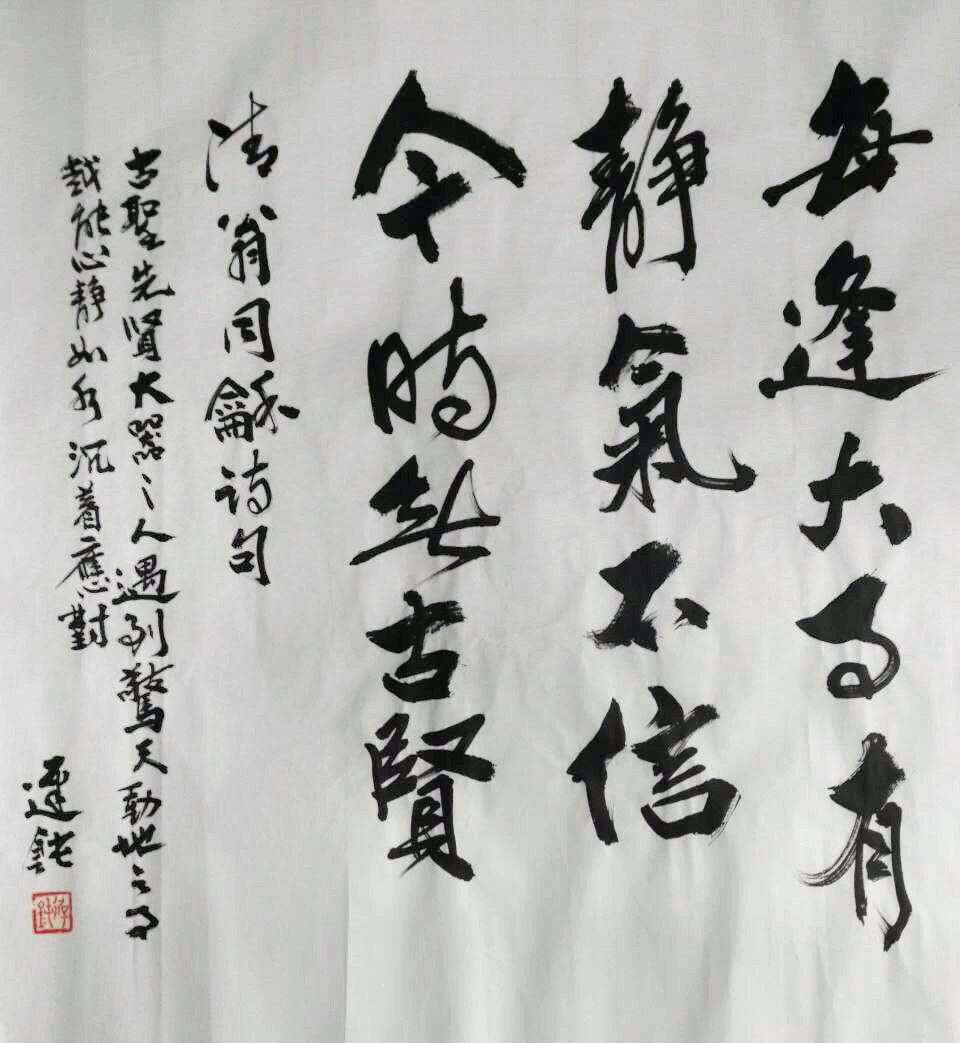 每逢大事有
静氣不信
今時無古賢
清翁同龢詩句
古聖先賢大器之人遇到驚天動地之事
越能心靜如水沉着應對